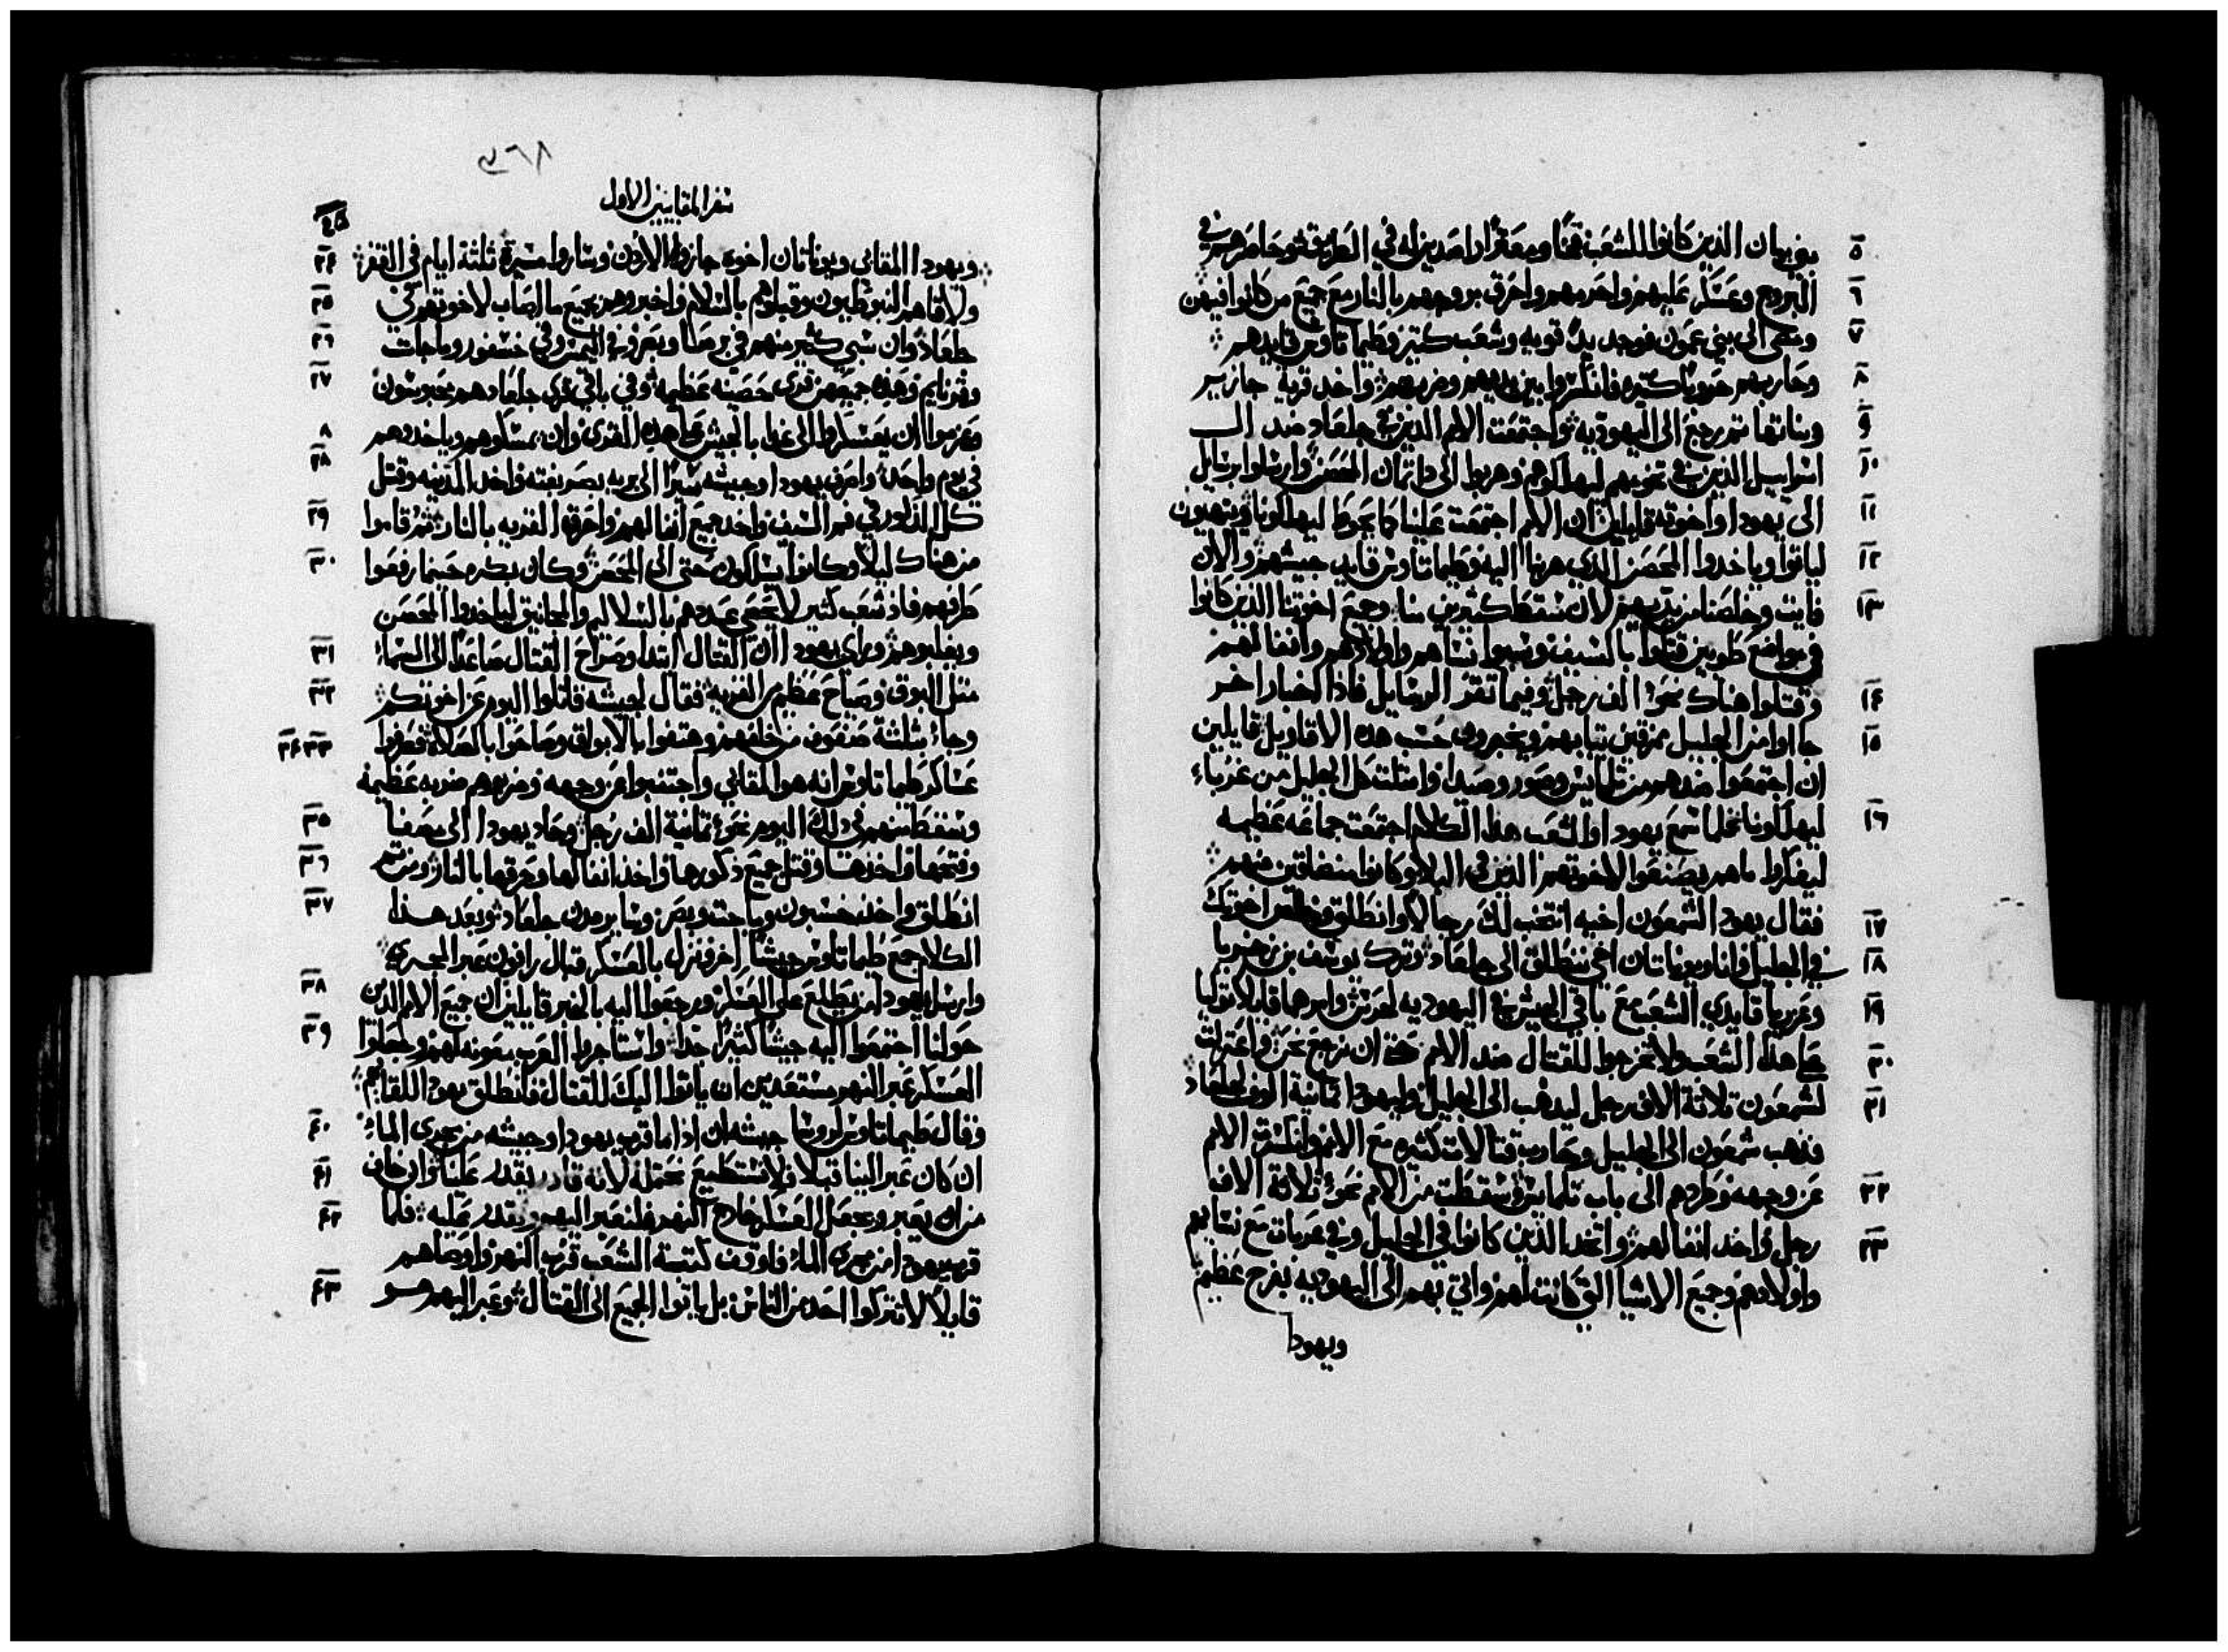 ٥ بني بيان الذين كانوا للشعب فخًا ومعقرًا راصدين له في الطريق وحاصرهم في
٦ البروج وعسكر عليهم واحرمهم واحرق بروجهم بالنار مع جميع من كانوا فيهن
٧ ومضى الى بني عمون فوجد يدً قويه وشعب كثير وطيماتاوس قايدهم
٨ وحاربهم حروبًا كثيره فانكسروا بين يديهم وضربهم واخد قرية جازير
٩ وبناتها تم رجع الى اليهوديه واجتمعت الامم الدين في جلعاد ضد ال
١٠ اسراييل الذين في تخومهم ليهلكوهم وهربوا الى داتمان الحصن وارسلوا رسايل
١١ الى يهودا واخوته قايلين ان الامم اجتمعت علينا كما يحوط ليهلكونا ويتهيون
١٢ لياتوا وياخدوا الحصن الذي هربنا اليه وطيماتاوس قايد جيشهم والان
١٣ فايت وخلصنا من يديهم لان سقط كثيرين منا وجميع اخوتنا الذين كانوا
في مواضع طوبين قتلوا بالسيف وسبوا نساهم واولادهم وانفالهم
١٤ وقتلوا هناك نحو الف رجل وفيما تقرَ الرسايل فاذا اخبار اخر
١٥ جااوا من الجليل ممزقين ثيابهم ويخبرون حسب هذه الاقاويل قايلين
ان اجتمعوا ضدهم من تلمايس وصور وصيدا وامتلت كل الجليل من غرباء
١٦ ليهلكونا فلما سمع يهودا والشعب هذا الكلام اجتمعت جماعه عظيمه
ليفكروا ماهم يصنعوا لاخوتهم الذين في البلا وكانوا متضايقين منهم
١٧ فقال يهودا لشمعون اخيه انتخب لك رجالاً وانطلق وخلص اخوتك
١٨ في الجليل وانا ويوناتان اخي ننطلق الى جلعاد وترك يوسف بن زخريا
١٩ وعزريا قايدي الشعب مع باقي الجيش في اليهوديه لحرس وامرهما قايلا توليا
٢٠ على هذا الشعب ولا تخرجوا للقتال ضد الامم حتى ان نرجع نحن واعتزلت
٢١ لشمعون ثلاثة الاف رجل ليدهب الى الجليل وليهودا ثمانية الوف لجلعاد
فذهب شمعون الى الجليل وحارب قتالات كثيره مع الامم وانكسرت الامم
٢٢ من وجهه وطردهم الى باب تلمايس وسقطت من الامم نحو ثلاثة الاف
٢٣ رجل واخد انفالهم واتخد الذين كانوا في الجليل وفي عربات مع نسايهم
واولادهم وجميع الاشيا التي كانت لهم واتي بهم الى اليهوديه بفرح عظيم
ويهودا
سفر المقابيين الاول
٢٤ ويهودا المقابي ويوناتان اخوه جازوا الاردن وساروا مسيرة ثلثة ايام في القفر
٢٥ ولاقاهم النبوطيون وقبلوهم بالسلام واخبروهم بجميع ما اصاب لاخوتهم في
٢٦ جلعاد وان سبي كثير منهم في برصا وبصر وفي اليمس وفي خسفور وماجات
٢٧ وقرنايم وهذه جميعهن قرى حصينه عظيمه وفي باقي قرى جلعاد هم محبوسون
وعزموا ان يعسكروا الى غدا بالجيش على هذه القرى وان يمسكوهم وياخدوهم
٢٨ في يوم واحد وامرف يهودا وجيشه سيرًا الى بريه بصر بغته واخد المدينه وقتل
٢٩ كل الذكور في فم السيف واخد جميع انفالهم واحرق القريه بالنار ثم قاموا
٣٠ من هناك ليلاً وكانوا يسلكون حتى الى الحصن وكان بكره حينما رفعوا
طرفهم فاذ شعب كثير لا يحصى عددهم بالسلاليم والمجانيق لياخدوا الحصن
٣١ ويغلبوهم وراى يهودا ان القتال ابتدا وصراخ القتال صاعدًا الى السماء
٣٢ مثل البوق وصياح عظيم من القريه فقال لجيشه قاتلوا اليوم عن اخوتكم
٣٣ ٣٤ وجاء بثلثة صفوف من خلفهم وهتفوا بالابواق وصاحوا بالصلاة فعرفوا
عساكر طيماتاوس انه هو المقابي واجتنبوا عن وجهه وضربوهم ضربه عظيمة
٣٥ وسقط منهم في ذلك اليوم نحو ثمانية الف رجل وحاد يهودا الى مصفا
٣٦ وفتحها واخدها وقتل جميع ذكورها واخد انفالها وحرقها بالنار ومن تم
٣٧ انطلق واخد خسبون وماجت وبصر وساير مدن جلعاد وبعد هذا
الكلام جمع طيماتاوس جيشًا اخر ونزل بالعسكر قبال رافون عبر المجرى
٣٨ وارسل يهودا من يطلع على العسكر ورجعوا اليه بالخبر قايلين ان جميع الامم الذين
٣٩ حولنا اجتمعوا اليه جيشًا كثيرًا جدًا واستاجروا العرب بمعونه لهم وجعلوا
العسكر عبر النهر مستعدين ان ياتوا اليك للقتال فانطلق يهودا للقايهم
٤٠ وقال طيماتاوس لروسا جيشه ان اذا ما قرب يهودا وجيشه من مجرى الماء
٤١ ان كان عبر الينا قبلا فلا نستطيع نحتمله لانه قادر يقدر علينا وان خاف
٤٢ من ان يعبر ويجعل العسكر خارج النهر فلنعبر اليهم ونقدر عليه فلما
قرب يهودا من مجرى الماء فاوقف كتبة الشعب قرب النهر واوصاهم
٤٣ قايلاً لا تتركوا احد من الناس بل ياتوا الجميع الى القتال وعبر اليهم هو